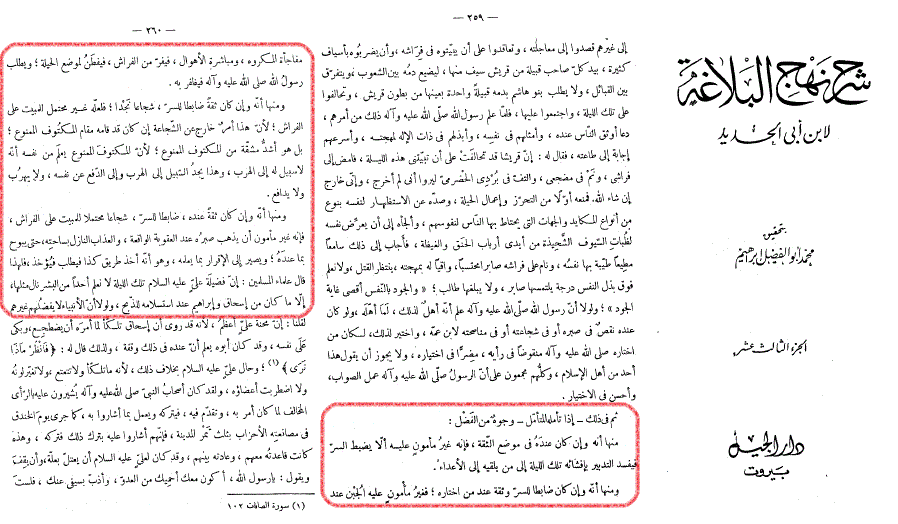 شرح نهج البلاغة
لابن أبي الحديد
بتحقيق
محمد أبو الفضل إبراهيم
الجزء الثالث عشر
دار الجيل
بيروت
— ٢٥٩ —
إلى غيرهم قصدوا إلى معاجلته، وتعاقدوا على أن يبيّتوه فى فراشه، وأن يضربوه بأسياف
كثيرة، بيد كلّ صاحب قبيلة من قريش سيف منها، ليضيع دمُه بين الشعوب، ويتفرّق
بين القبائل، ولا يطلب بنو هاشم بدمه قبيلةً واحدة بعينها من بطون قريش، وتحالفوا
على تلك الليلة، واجتمعوا عليها، فلما علم رسول الله صلى الله عليه وآله ذلك من أمرهم،
دعا أوثق النّاس عنده، وأمثلهم فى نفسه، وأبذلهم فى ذات الإله لمهجته، وأسرعهم
إجابة إلى طاعته، فقال له: إنّ قريشا قد تحالفت على أن تبيّتنى هذه الليلة، فامض إلى
فراشى، ونم فى مضجعى، والتفّ فى بُرْدِى الحضرمىّ ليروا أنى لم أخرج، وإنّى خارج
إن شاء الله. فمنعه أوّلًا من التحرّز وإعمال الحيلة، وصدّه عن الاستظهار لنفسه بنوع
من أنواع المكايد والجهات التى يحتاط بها النّاس لنفوسهم، وألجأه إلى أن يعرّض نفسه
لظُبات السّيوف الشّحيذة من أيدى أرباب الحنَق والغيظة، فأجاب إلى ذلك سامعًا
مطيعًا طيّبة بها نفسُه، ونام على فراشه صابرا محتسبا، واقيًا له بمهجته، ينتظر القتل، ولا نعلم
فوق بذل النفس درجة يلتمسها صابر، ولا يبلغها طالب؛ « والجود بالنّفس أقصى غاية
الجود »؛ ولولا أنّ رسول الله صلى الله عليه وآله علم أنّه أهلٌ لذلك، لما أهله، ولو كان
عنده نقصٌ فى صبره أو فى شجاعته أو فى مناصحته لابن عمّه، واختير لذلك، لكان من
اختاره صلى الله عليه وآله منقوضًا فى رأيه، مضِرًّا فى اختياره، ولا يجوز أن يقول هذا
أحد من أهل الإسلام، وكلّهم مجمعون على أنّ الرسول صلى الله عليه وآله عمل الصواب،
وأحسن فى الاختيار.
ثم فى ذلك – إذا تأمله المتأمل – وجوهٌ من الفضل:
منها أنه وإن كان عنده فى موضع الثّقة، فإنه غيرُ مأمونٍ عليه ألّا يضبط السرّ
فيفسد التدبير بإفشائه تلك الليلة إلى من يلقيه إلى الأعداء.
ومنها أنّه وإن كان ضابطا للسرّ وثقةً عند من اختاره؛ فغيرُ مأمونٍ عليه الجُبْن عند
— ٢٦٠ —
مفاجأة المكروه، ومباشرة الأهوال، فيفرّ من الفراش، فيفطَنُ لموضع الحيلة؛ ويطلب
رسولُ الله صلى الله عليه وآله فيظفر به.
ومنها أنّه وإن كان ثقةً ضابطا للسرّ، شجاعا نَجْدًا؛ فلعلّه غير محتمل للمبيت على
الفراش؛ لأنّ هذا أمرٌ خارج عن الشّجاعة إن كان قد قامه مقام المكتوف الممنوع؛
بل هو أشدّ مشقّة من المكتوف الممنوع؛ لأنّ المكتوف الممنوع يعلم من نفسه أنّه
لا سبيل له إلى الهرب، وهذا يجدُ السّبيل إلى الهرب وإلى الدّفع عن نفسه، ولا يهرُب
ولا يدافع.
ومنها أنّه وإن كان ثقةً عنده، ضابطا للسرّ، شجاعا محتملا للمبيت على الفراش،
فإنه غير مأمون أن يذهب صبرُه عند العقوبة الواقعة، والعذاب النازل بساحته، حتى يبوح
بما عنده؛ ويصير إلى الإقرار بما يعلمه، وهو أنّه أخذ طريق كذا فيطلب فيُؤخذ، فلهذا
قال علماء المسلمين: إنّ فضيلة علىّ عليه السلام تلك الليلة لا نعلم أحدًا من البشر نال مثلها،
إلّا ما كان من إسحاق وإبراهيم عند استسلامه للذبح، ولولا أنّ الأنبياء لا يفضُلهم غيرهم
لقلنا: إنّ محنة علىّ أعظم، لأنه قد روى أن إسحاق تلكّأ لما أمره أن يضطجع، وبكى
على نفسه، وقد كان أبوه يعلم أنّ عنده فى ذلك وقفة، ولذلك قال له: ﴿فَانْظُرْ مَاذَا
تَرَى﴾ (١)؛ وحال علىّ عليه السلام بخلاف ذلك، لأنه ما تلكّأ ولا تتعتع، ولا تغيّر لونُه
ولا اضطربت أعضاؤه، ولقد كان أصحاب النبىّ صلى الله عليه وآله يُشيرون عليه بالرّأى
المخالف لما كان أمر به، وتقدّم فيه، فيتركه ويعمل بما أشاروا به، كما جرى يوم الخندق
فى مصانعته الأحزاب بثلث تمر المدينة، فإنّهم أشاروا عليه بترك ذلك فتركه، وهذه
كانت قاعدتُه معهم، وعادته بينهم، وقد كان لعلىّ عليه السلام أن يعتلّ بعلّة، وأن يقِف
ويقول: يا رسول الله، أكون معك أحميك من العدوّ، وأذبّ بسيفى عنك، فلست
(١) سورة الصافات ١٠٢